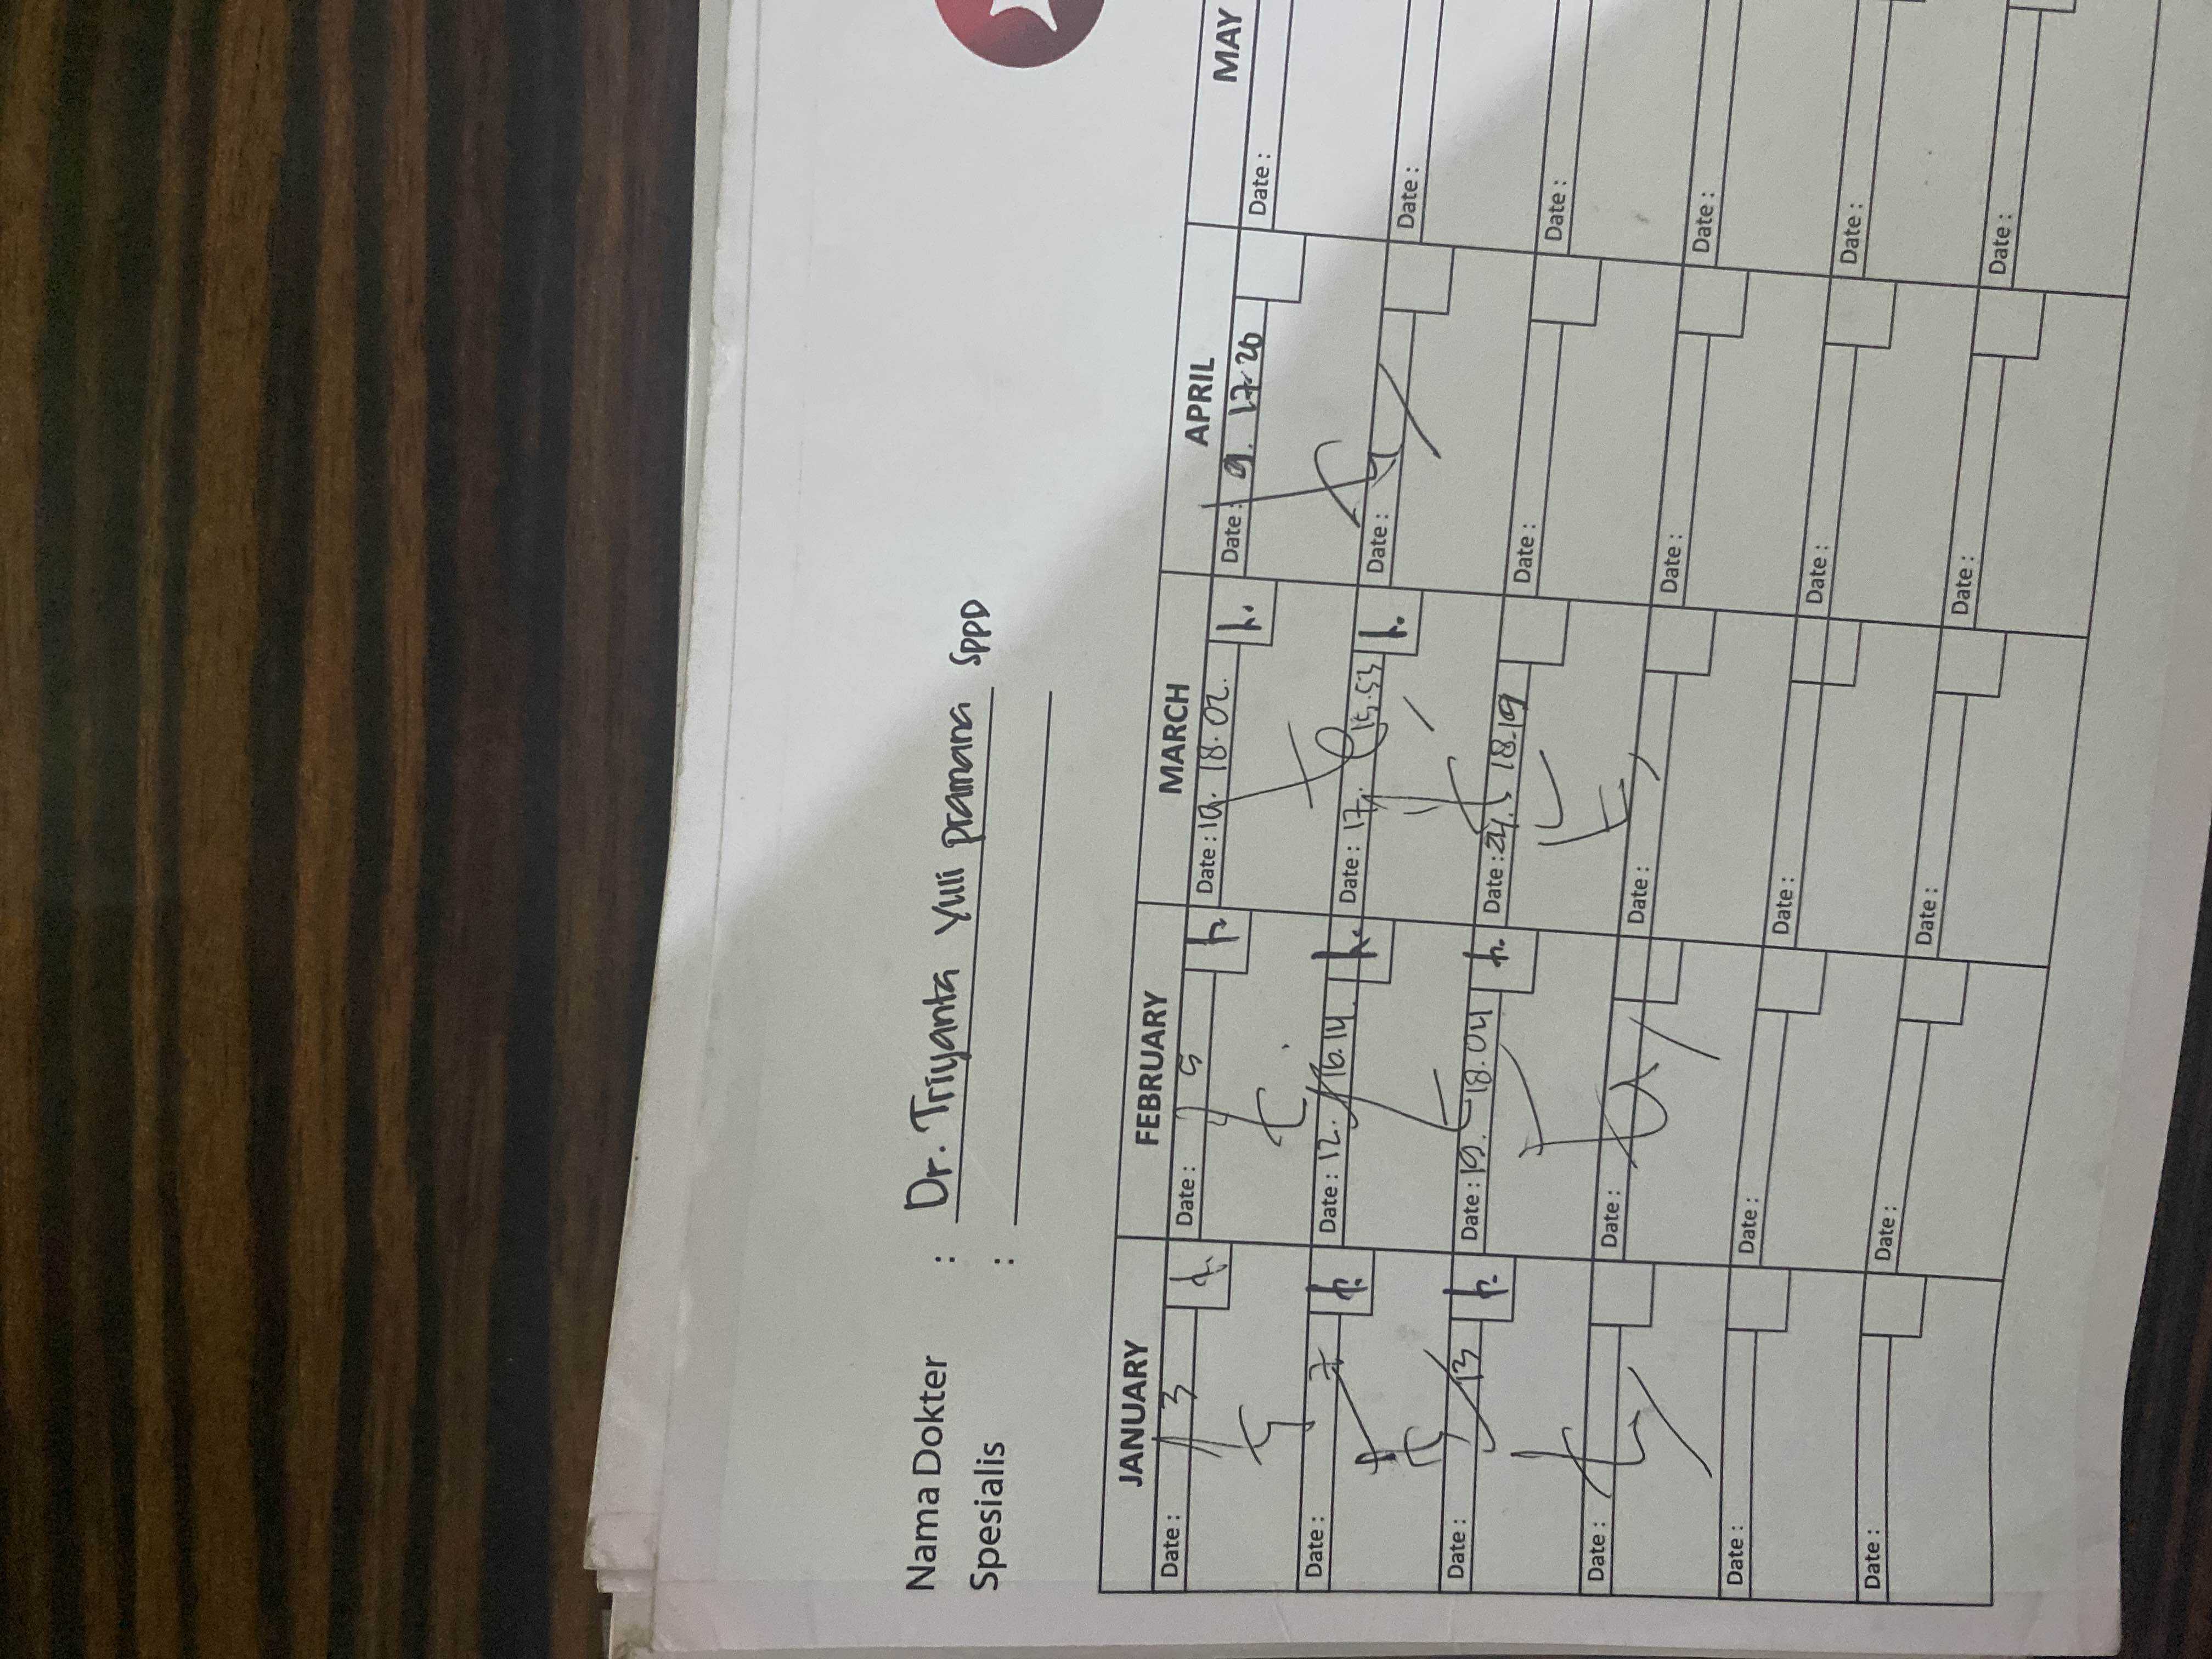 Nama Dokter : Dr. Triyanta Yuli Pramana SPPD
Spesialis :
JANUARY FEBRUARY MARCH APRIL MAY
Date : 3 Date : 5 Date : 10. 18.02. Date : 9. 17.20 Date :
Date : 7 Date : 12. 16.14. Date : 17. 15.53 Date : Date :
Date : 13 Date : 19. 18.04 Date : 24. 18.19 Date : Date :
Date : Date : Date : Date : Date :
Date : Date : Date : Date : Date :
Date : Date : Date : Date : Date :